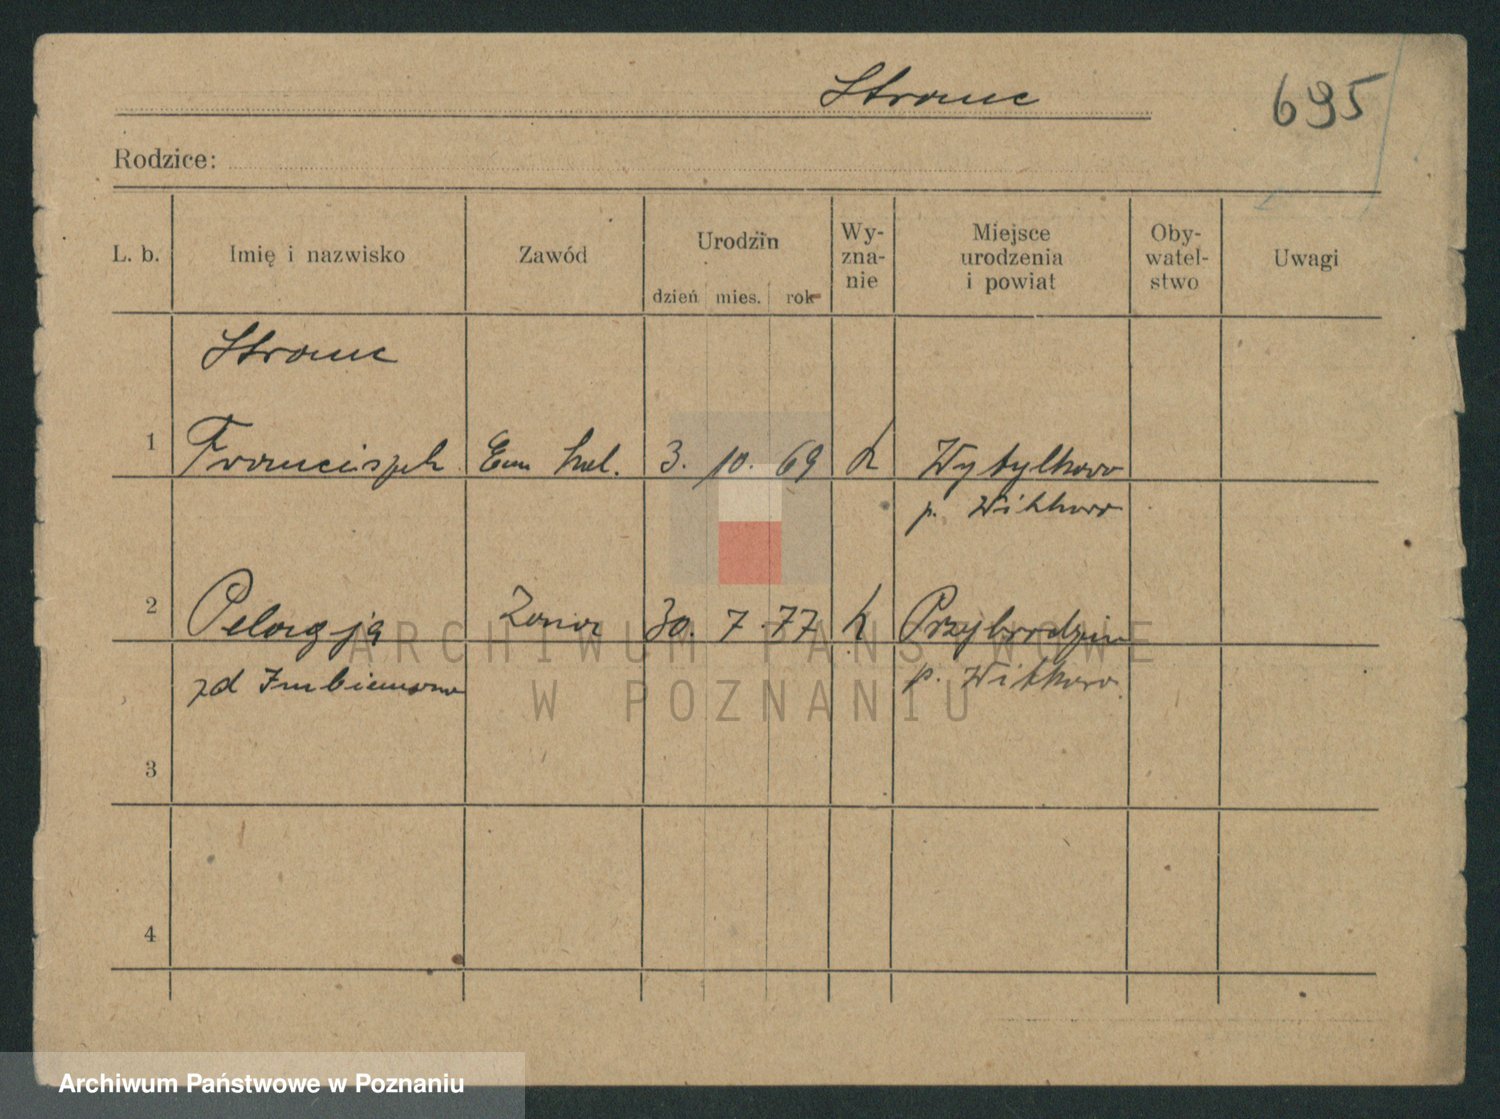 Stranc
695
Rodzice:
L. b. Imię i nazwisko Zawód Urodzin dzień mies. rok Wy-zna-nie Miejsce urodzenia i powiat Oby-watel-stwo Uwagi
Stranc
1 Franciszek Em kol. 3. 10. 69 k Wybytkowo
p. Witkowo
2 Pelagja Żona 30. 7. 77 k Przybrodzin
zd
p. Witkowo
3
4
ARCHIWUM PAŃSTWOWE
W POZNANIU
Archiwum Państwowe w Poznaniu